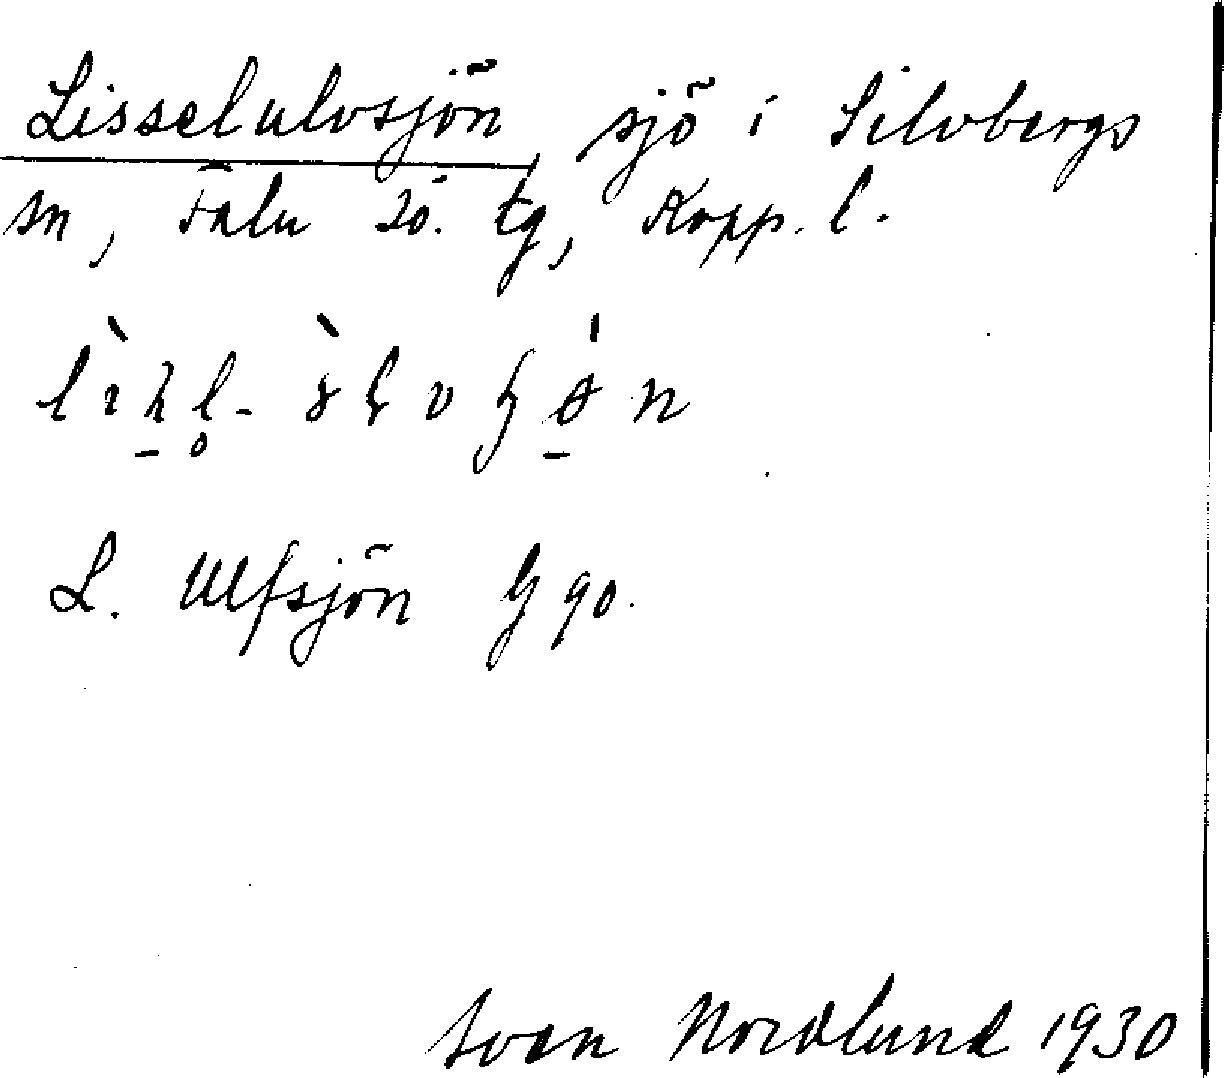 Lisselulvsjön, sjö i Silvbergs
sn, Falu sö. tg, Kopp. l.
L. Ulfsjön G 90.
Sven Nordlund 1930